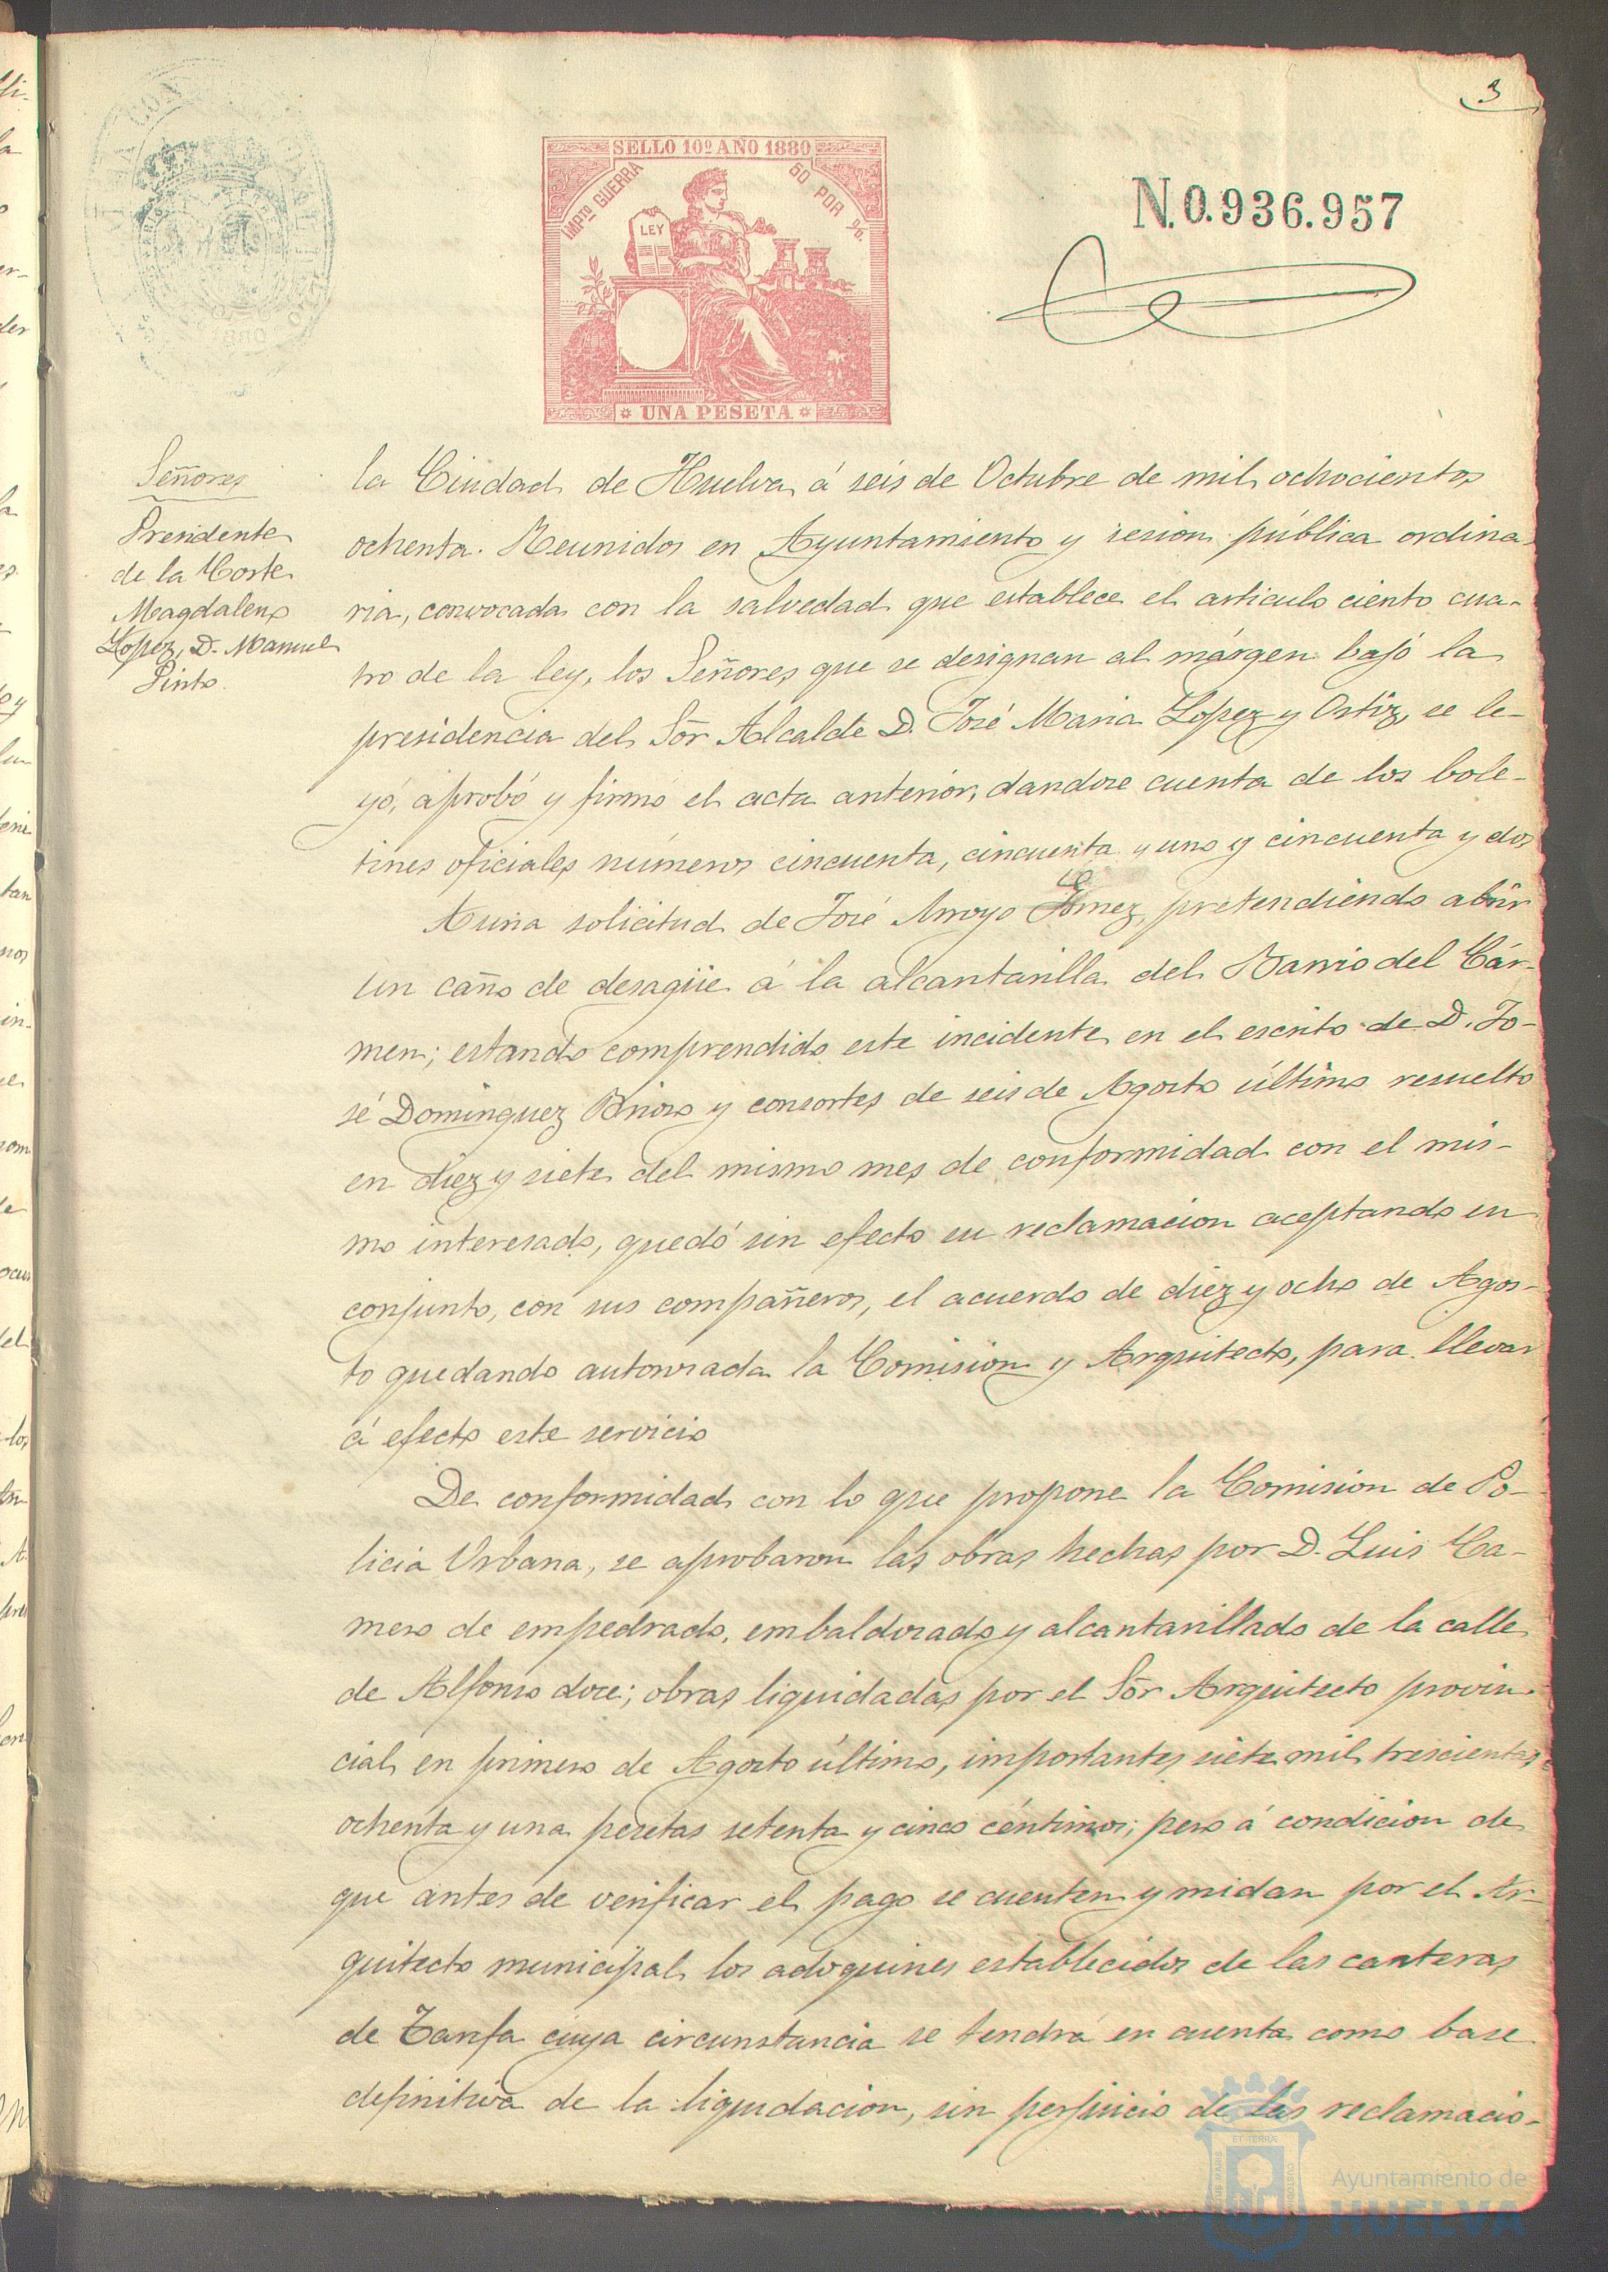 3
SELLO 10º AÑO 1880
IMPTO GUERRA
50 POR %
LEY
UNA PESETA
N.0.936.957
Señores
Presidente
de la Corte
Magdalena
Lopez, D. Manuel
Pinto.
la Ciudad de Huelva á seis de Octubre de mil ochocientos
ochenta. Reunidos en Ayuntamiento y sesion pública ordina-
ria, convocada con la salvedad que establece el articulo ciento cua-
tro de la ley, los Señores que se designan al márgen bajó la
presidencia del Sõr Alcalde D. José Maria Lopez y Ortiz, se le-
yó, aprobó y firmó el acta anterior, dandose cuenta de los bole-
tines oficiales números cincuenta, cincuenta y uno y cincuenta y dos
A una solicitud de José Arroyo Gomez, pretendiendo abrir
un caño de desagüe á la alcantarilla del Barrio del Cár-
men; estando comprendido este incidente en el escrito de D. Jo-
sé Dominguez y consortes de seis de Agosto último resuelto
en diez y siete del mismo mes de conformidad con el mis-
mo interesado, quedó sin efecto su reclamacion aceptando en
conjunto, con sus compañeros, el acuerdo de diez y ocho de Agos-
to quedando autorizada la Comision y Arquitecto, para llevar
á efecto este servicio
De conformidad con lo que propone la Comision de Po-
licia Urbana, se aprobaron las obras hechas por D. Luis Ca-
mero de empedrado, embaldosado y alcantarillado de la calle
de Alfonso doce; obras liquidadas por el Sõr Arquitecto provin-
cial en primero de Agosto último, importantes siete mil trescientas
ochenta y una pesetas setenta y cinco céntimos; pero á condicion de
que antes de verificar el pago se cuenten y midan por el Ar-
quitecto municipal los adoquines establecidos de las canteras
de Tarifa cuya circunstancia se tendrá en cuenta como base
definitiva de la liquidacion, sin perjuicio de las reclamacio-
Ayuntamiento de
HUELVA